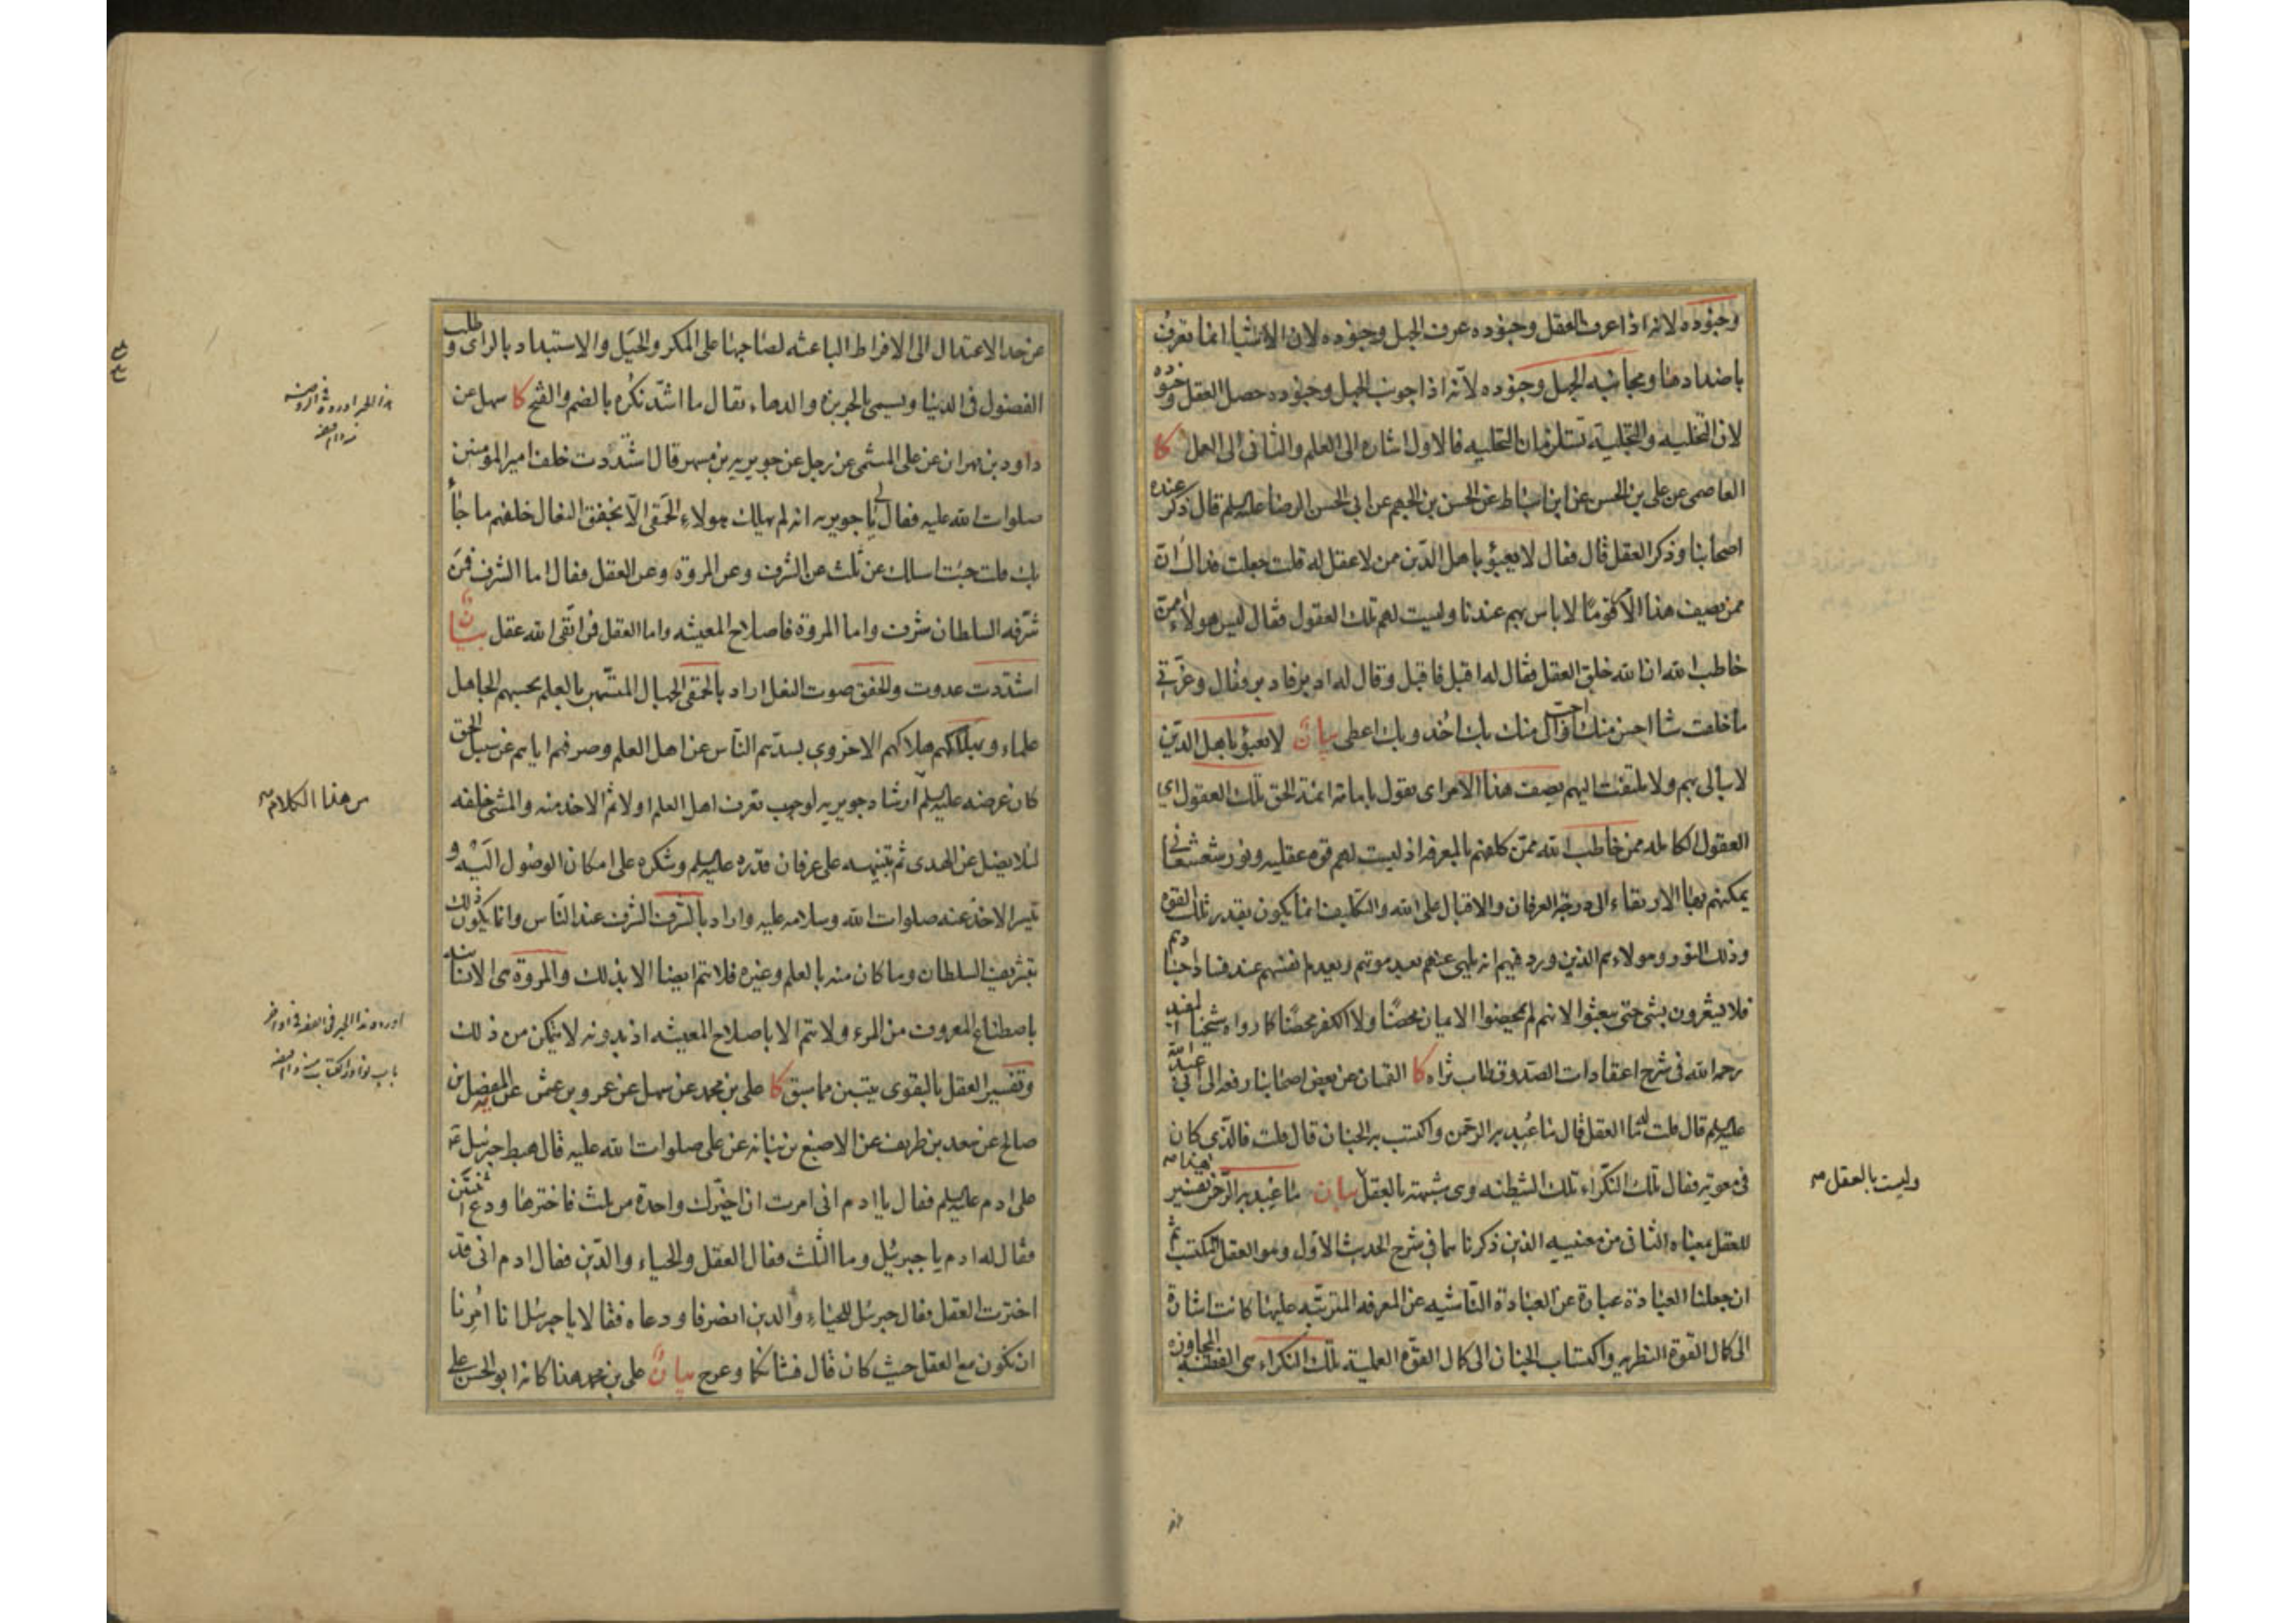 وجنوده لانه اذا عرف العقل وجنوده عرف الجهل وجنوده لان الاشيا انما تعرف
باضدادها ومجانبه الجهل وجنوده لانه اذا جونب الجهل وجنوده حصل العقل وجنوده
لان التخليه والتجلية تستلزمان التحليه فالاول اشاره الى العلم والثانى الى العمل كا
العاصمى عن على بن الحسن عن ابن اسباط عن الحسن بن الجهم عن ابى الحسن الرضا عليه السلم قال ذكر عنده
اصحابنا وذكر العقل قال فقال لا يعبؤ باهل الدين ممن لا عقل له قلت جعلت فداك ان
ممن يصف هذا الامر قوما لا باس بهم عندنا وليست لهم تلك العقول فقال ليس هولاء ممن
خاطب الله ان الله خلق العقل فقال له اقبل فاقبل وقال له ادبر فادبر وقال وعزتى
ما خلقت شيا احسن منك او احب الى منك بك اخذ وبك اعطى بيان لا يعبؤ باهل الدين
لا يبالى بهم ولا يلتفت اليهم يصف هذا الامر اى يقول بامامة ائمة الحق تلك العقول اى
العقول الكامله ممن خاطب الله ممن كلفهم بالمعرفه اذ ليست لهم قوه عقليه ونور شعشعانى
يمكنهم بهما الارتقاء الى درجة العرفان والاقبال على الله والتكليف انما يكون بقدر تلك القوه
وذلك النور وهولاء هم الذين ورد فيهم انه يلهى عنهم بعد موتهم وبعدم انفسهم عند فساد اجسادهم
فلا يشعرون بشى حتى يبعثوا لانهم لم يمحضوا الايمان محضا ولا الكفر محضا كما رواه شيخنا المفيد
رحمه الله فى شرح اعتقادات الصدوق طاب ثراه كا القميان عن بعض اصحابنا رفعه الى ابى عبد الله
عليه السلم قال قلت له ما العقل قال ما عبد به الرحمن واكتسب به الجنان قال قلت فالذى كان
فى معويه فقال تلك النكراء تلك الشيطنه وهى شبيهة بالعقل بيان ما عبد به الرحمن هذا تفسير
للعقل بمعناه الثانى من معنييه الذين ذكرناهما فى شرح الحديث الاول وهو العقل المكتسب ثم
ان جعلنا العبادة عبارة عن العبادة الناشيه عن المعرفه المترتبه عليها كانت اشارة
الى كمال القوة النظريه واكتساب الجنان الى كمال القوة العملية تلك النكراء هى الفطنة المجاوزه
وليست بالعقل صح
عن حد الاعتدال الى الافراط الباعثه لصاحبها على المكر والحيل والاستبداد بالراى وطلب
الفضول فى الدنيا ويسمى بالجربزه والدهاء يقال ما اشد نكره بالضم والفتح كا سهل عن
داود بن مهران عن على الميثمى عن رجل عن جويريه بن مسهر قال اشتددت خلف امير المؤمنين
صلوات الله عليه فقال لى يا جويريه انه لم يهلك هولاء الحمقى الا بخفق النعال خلفهم ما جاء
بك قلت جئت اسالك عن ثلث عن الشرف وعن المروة وعن العقل فقال اما الشرف فمن
شرفه السلطان شرف واما المروة فاصلاح المعيشه واما العقل فمن اتقى الله عقل بيان
اشتددت عدوت والخفق صوت النعل اراد بالحمقى الجهال المتشبهين بالعلم يحسبهم الجاهل
علماء ويهلكهم هلاكهم الاخروى بسدهم الناس عن اهل العلم وصرفهم اياهم عن سبيل الحق
كان غرضه عليه السلم ارشاد جويريه لوجوب تعرف اهل العلم اولا ثم الاخذ منه والمشى خلفه
لئلا يضل عن الهدى ثم تنبيهه على عرفان قدره عليه السلم وشكره على امكان الوصول اليه و
تيسر الاخذ عنه صلوات الله وسلامه عليه واراد بالشرف الشرف عند الناس وانما يكون ذلك
بتشريف السلطان وما كان منه بالعلم وغيره فلا يتم ايضا الا بذلك والمروة هى الانسانيه
باصطناع المعروف من المرء ولا تتم الا باصلاح المعيشه اذ بدونه لا يتمكن من ذلك
وتفسير العقل بالتقوى يتبين مما سبق كا على بن محمد عن سهل عن عمرو بن عثمن عن المفضل بن
صالح عن سعد بن طريف عن الاصبغ بن نباته عن على صلوات الله عليه قال هبط جبرئيل ع
على ادم عليه السلم فقال يا ادم انى امرت ان اخيرك واحدة من ثلث فاخترها ودع اثنتين
فقال له ادم يا جبرئيل وما الثلث فقال العقل والحياء والدين فقال ادم انى قد
اخترت العقل فقال جبرئيل للحياء والدين انصرفا ودعاه فقالا يا جبرئيل انا امرنا
ان نكون مع العقل حيث كان قال فشانكما وعرج بيان على بن محمد هنا كانه ابو الحسن على
من هذا الكلام صح